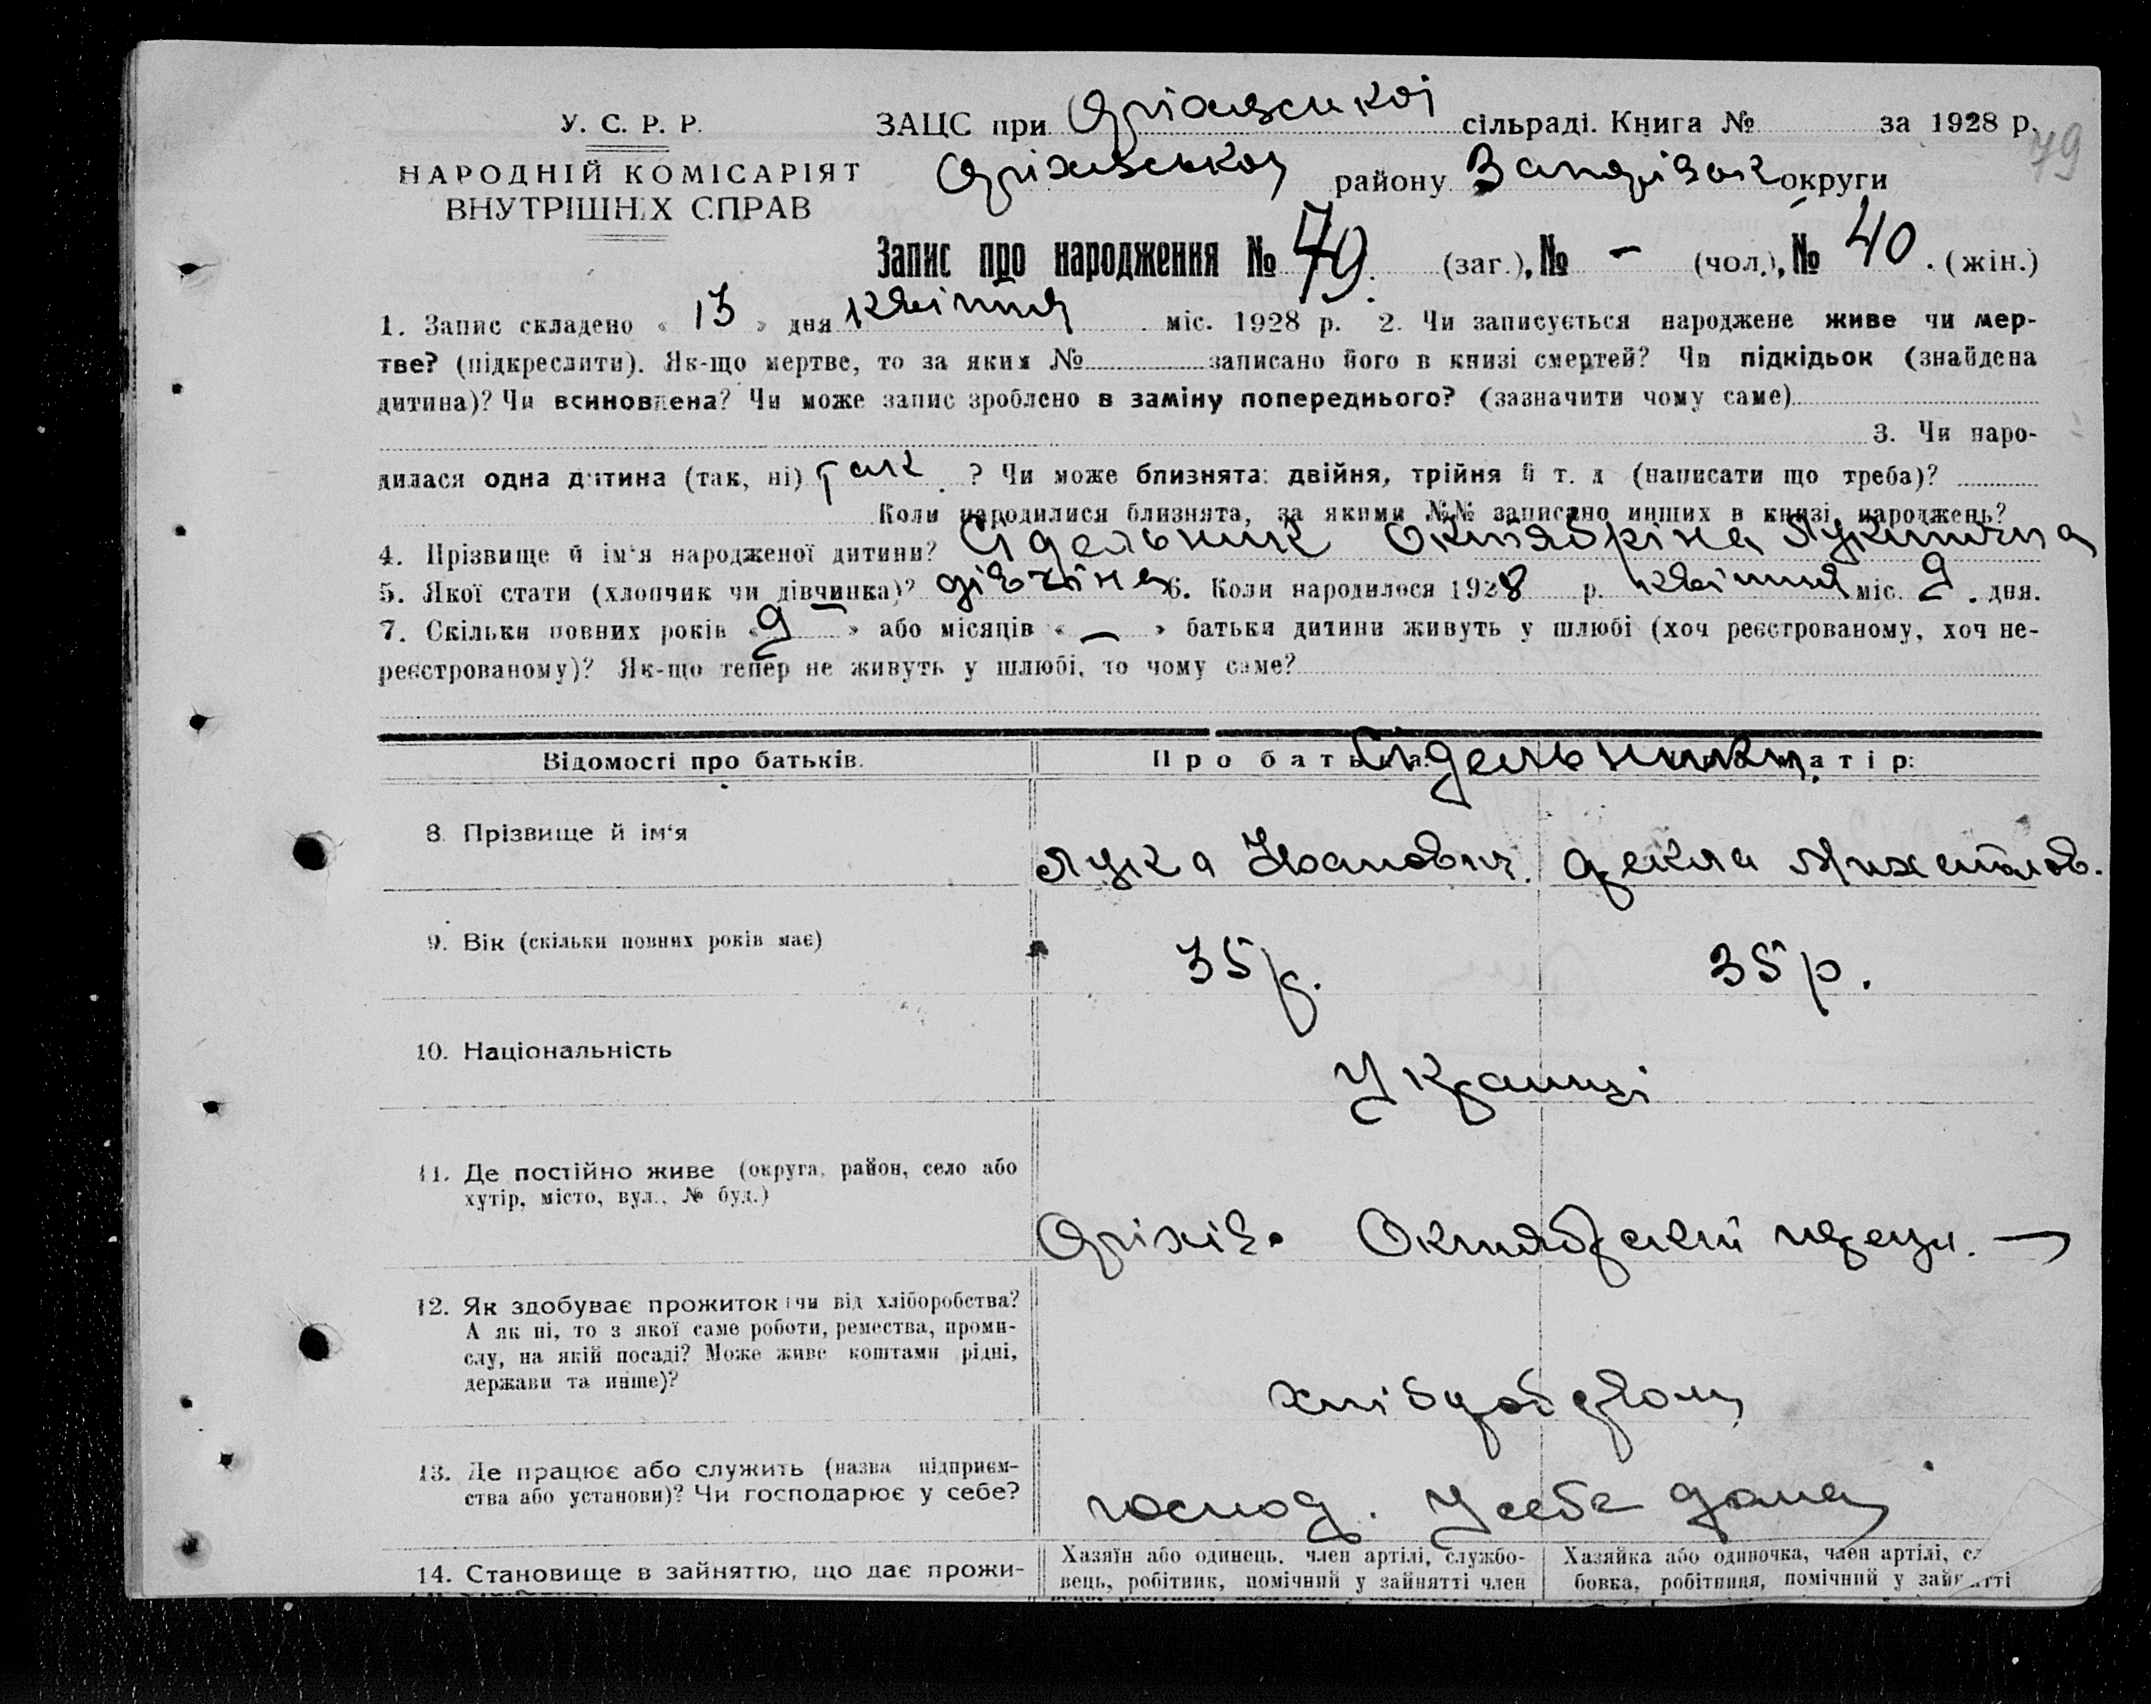 У. С. Р. Р.
НАРОДНІЙ КОМІСАРІЯТ
ВНУТРІШНІХ СПРАВ
ЗАЦС при Оріхівській сільраді. Книга № за 1928 р.
79
Оріхівськ району Запоріжж округи
Запис про народження № 79. (заг.), № – (чол.), № 40. (жін.)
1. Запис складено « 13 » дня квітня міс. 1928 р. 2. Чи записується народжене живе чи мер-
тве? (підкреслити). Як-що мертве, то за яким № записано його в книзі смертей? Чи підкідьок (знайдена
дитина)? Чи всиновлена? Чи може запис зроблено в заміну попереднього? (зазначити чому саме)
3. Чи наро-
дилася одна дитина (так, ні) так ? Чи може близнята: двійня, трійня й т. д (написати що треба)?
Коли народилися близнята, за якими №№ записано инших в книзі народжень?
4. Прізвище й ім‘я народженої дитини? Сідельник Октябріна Лукинична
5. Якої стати (хлопчик чи дівчинка)? дівчіна 6. Коли народилося 1928 р. квітня міс. 2. дня.
7. Скільки повних років « 9 » або місяців « – » батьки дитини живуть у шлюбі (хоч реєстрованому, хоч не-
реєстрованому)? Як-що тепер не живуть у шлюбі, то чому саме?
Відомості про батьків.
Про батька: Сідельники. матір:
8. Прізвище й ім‘я
Лука Иванович. Текла Михайлов.
9. Вік (скільки повних років має)
35 р. 35 р.
10. Національність
Українці
11. Де постійно живе (округа, район, село або
хутір, місто, вул., № буд.)
Оріхів. Октябрский переул. –
12. Як здобуває прожиток чи від хліборобства?
А як ні, то з якої саме роботи, ремества, проми-
слу, на якій посаді? Може живе коштами рідні,
держави та инше)?
13. Де працює або служить (назва підприєм-
ства або установи)? Чи господарює у себе?
господ. У себе дома
14. Становище в зайняттю, що дає прожи-
Хазяїн або одинець, член артілі, службо-
вець, робітник, помічний у зайнятті член
Хазяйка або одиночка, член артілі, с
бовка, робітниця, помічний у зайнятті